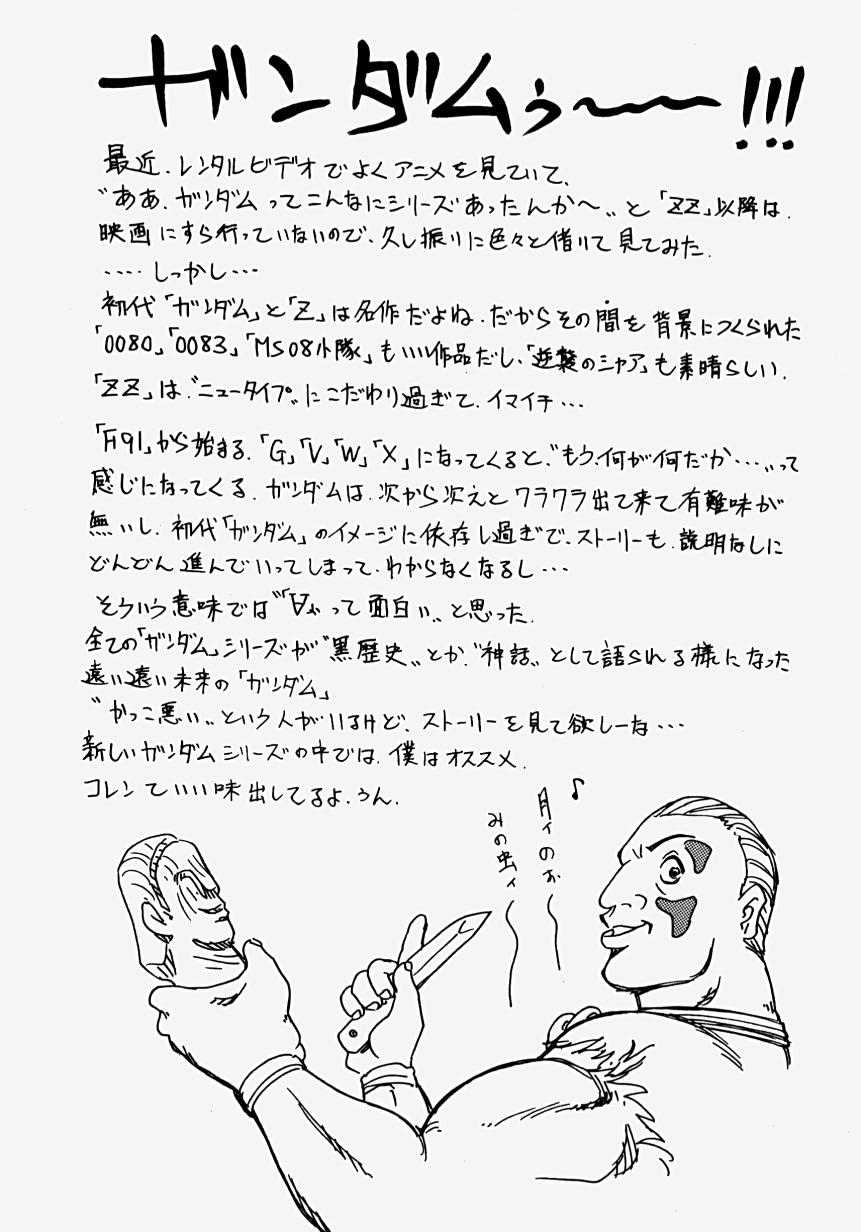 ガンダムぅ〜〜!!!
最近、レンタルビデオでよくアニメを見ていて、
“ああ、ガンダムってこんなにシリーズあったんか〜„と「ZZ」以降は、
映画にすら行っていないので、久し振りに色々と借りて見てみた。
‥‥しっかし…
初代「ガンダム」と「Z」は名作だよね、だからその間を背景につくられた
「0080」「0083」「MS08小隊」もいい作品だし、「逆襲のシャア」も素晴らしい。
「ZZ」は“ニュータイプ„にこだわり過ぎて、イマイチ…
「F91」から始まる、「G」「V」「W」「X」になってくると、“もう、何が何だか…„って
感じになってくる、ガンダムは、次から次えとワラワラ出て来て有難味が
無いし、初代「ガンダム」のイメージに依存し過ぎで、ストーリーも、説明なしに
どんどん進んでいってしまって、わからなくなるし…
そういう意味では“∀„って面白い„と思った。
全ての「ガンダム」シリーズが“黒歴史„とか、“神話„として語られる様になった
遠い遠い未来の「ガンダム」
“かっこ悪い„という人がいるけど、ストーリーを見て欲しーな…
新しいガンダムシリーズの中では、僕はオススメ。
コレンていい味出してるよ、うん。
♪
月ィのぉ〜
みの虫ィ〜